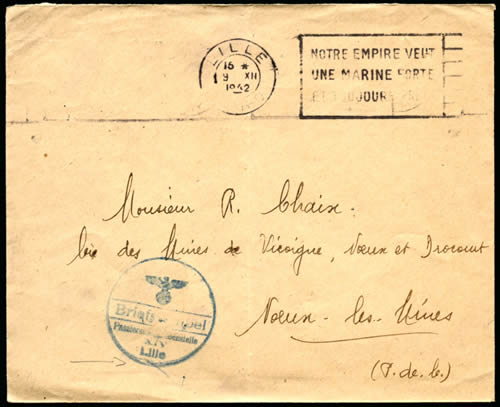 LILLE
16 *
9 XII
1942
NOTRE EMPIRE VEUT
UNE MARINE FORTE
ET TOUJOURS
Monsieur R. Chaix.
Cie des Mines de Vicoigne, Noeux et Drocourt
Noeux-les-Mines
(P. de C.)
Briefstempel
XIV
Lille